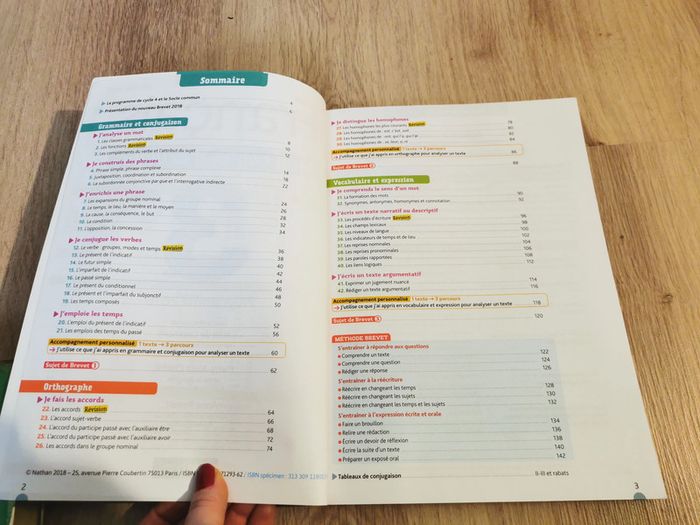 Sommaire
▶ Le programme de cycle 4 et le Socle commun 4
▶ Présentation du nouveau Brevet 2018 6
Grammaire et conjugaison
▶ J'analyse un mot
1. Les classes grammaticales Révision 8
2. Les fonctions Révision 10
3. Les compléments du verbe et l'attribut du sujet 12
▶ Je construis des phrases
4. Phrase simple, phrase complexe 14
5. Juxtaposition, coordination et subordination 18
6. La subordonnée conjonctive par que et l'interrogative indirecte 22
▶ J'enrichis une phrase
7. Les expansions du groupe nominal 24
8. Le temps, le lieu, la manière et le moyen 26
9. La cause, la conséquence, le but 28
10. La condition 32
11. L'opposition, la concession 34
▶ Je conjugue les verbes
12. Le verbe : groupes, modes et temps Révision 36
13. Le présent de l'indicatif 38
14. Le futur simple 40
15. L'imparfait de l'indicatif 42
16. Le passé simple 44
17. Le présent du conditionnel 46
18. Le présent et l'imparfait du subjonctif 48
19. Les temps composés 50
▶ J'emploie les temps
20. L'emploi du présent de l'indicatif 52
21. Les emplois des temps du passé 56
Accompagnement personnalisé 1 texte → 3 parcours
→ J'utilise ce que j'ai appris en grammaire et conjugaison pour analyser un texte 60
Sujet de Brevet 1 62
Orthographe
▶ Je fais les accords
22. Les accords Révision 64
23. L'accord sujet-verbe 66
24. L'accord du participe passé avec l'auxiliaire être 68
25. L'accord du participe passé avec l'auxiliaire avoir 72
26. Les accords dans le groupe nominal 74
© Nathan 2018 – 25, avenue Pierre Coubertin 75013 Paris / ISBN 71293-62 / ISBN spécimen : 313 309
2
▶ Je distingue les homophones
27. Les homophones les plus courants Révision 78
28. Les homophones de : est, c'est, soit 80
82
84
Accompagnement personnalisé 1 texte → 3 parcours
→ J'utilise ce que j'ai appris en orthographe pour analyser un texte 86
Sujet de Brevet 2 88
Vocabulaire et expression
▶ Je comprends le sens d'un mot
31. La formation des mots 90
32. Synonymes, antonymes, homonymes et connotation 92
▶ J'écris un texte narratif ou descriptif
33. Les procédés d'écriture Révision 96
34. Les champs lexicaux 98
35. Les niveaux de langue 100
36. Les indicateurs de temps et de lieu 102
37. Les reprises nominales 104
38. Les reprises pronominales 106
39. Les paroles rapportées 108
40. Les liens logiques 112
▶ J'écris un texte argumentatif
41. Exprimer un jugement nuancé 114
42. Rédiger un texte argumentatif 116
Accompagnement personnalisé 1 texte → 3 parcours
→ J'utilise ce que j'ai appris en vocabulaire et expression pour analyser un texte 118
Sujet de Brevet 3 120
MÉTHODE BREVET
S'entraîner à répondre aux questions
● Comprendre un texte 122
● Comprendre une question 124
● Rédiger une réponse 126
S'entraîner à la réécriture
● Réécrire en changeant les temps 128
● Réécrire en changeant les sujets 130
● Réécrire en changeant les temps et les sujets 132
S'entraîner à l'expression écrite et orale
● Faire un brouillon 134
● Relire une rédaction 136
● Écrire un devoir de réflexion 138
● Écrire la suite d'un texte 140
● Préparer un exposé oral 142
▶ Tableaux de conjugaison II-III et rabats
3